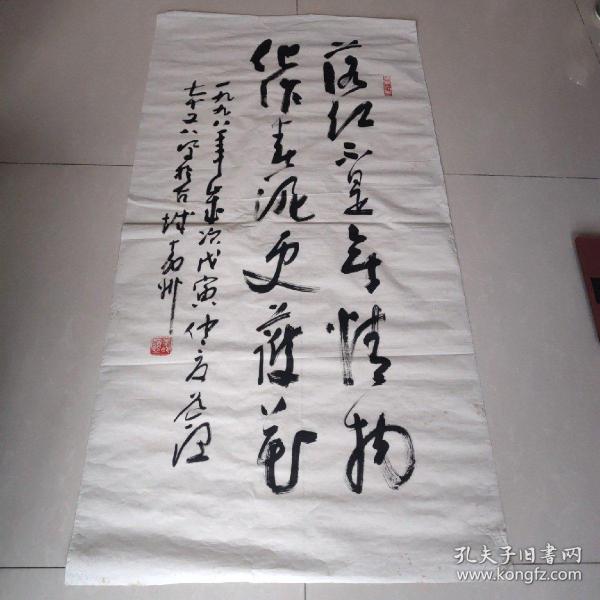 落红不是无情物
化作春泥更护花
一九九八年岁次戊寅仲夏
七十又八写于古城嘉州
孔夫子旧书网
www.kongfz.com